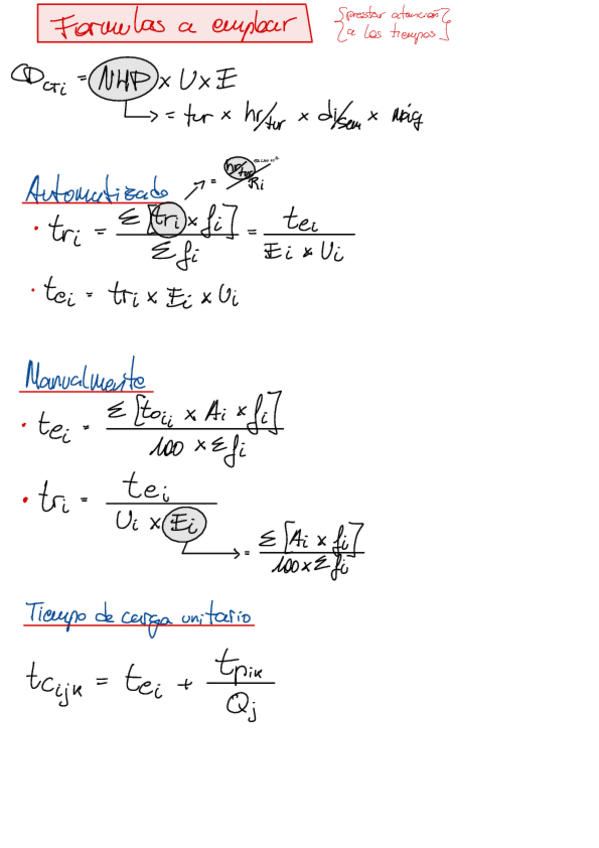 Formulas a emplear
{prestar atención}
{a los tiempos}
CD_CTi = NHP x U x E
= tur x hr/tur x di/sem x máq
Automatizado
= hr/tur / Ri
• tri = Σ [tri x fi] / Σ fi = tei / Ei x Ui
• tei = tri x Ei x Ui
Manualmente
• tei = Σ [toij x Ai x fi] / 100 x Σ fi
• tri = tei / Ui x Ei
= Σ [Ai x fi] / 100 x Σ fi
Tiempo de carga unitario
tcijk = tei + tpik / Qj